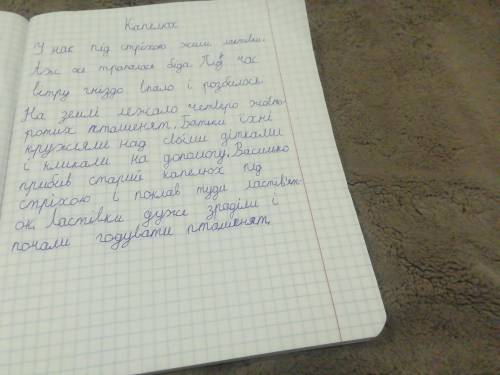 Капелюх
У нак під стріхою жили ластівки.
Аж ось трапилась біда. Під час
вітру гніздо впало і розбилось.
На землі лежало четверо жовто-
ротих пташенят. Батьки їхні
кружляли над своїми дітками
і кликали на допомогу. Василько
прибив старий капелюх під
стріхою і поклав туди ластів'ят-
ок. Ластівки дуже зраділи і
почали годувати пташенят.